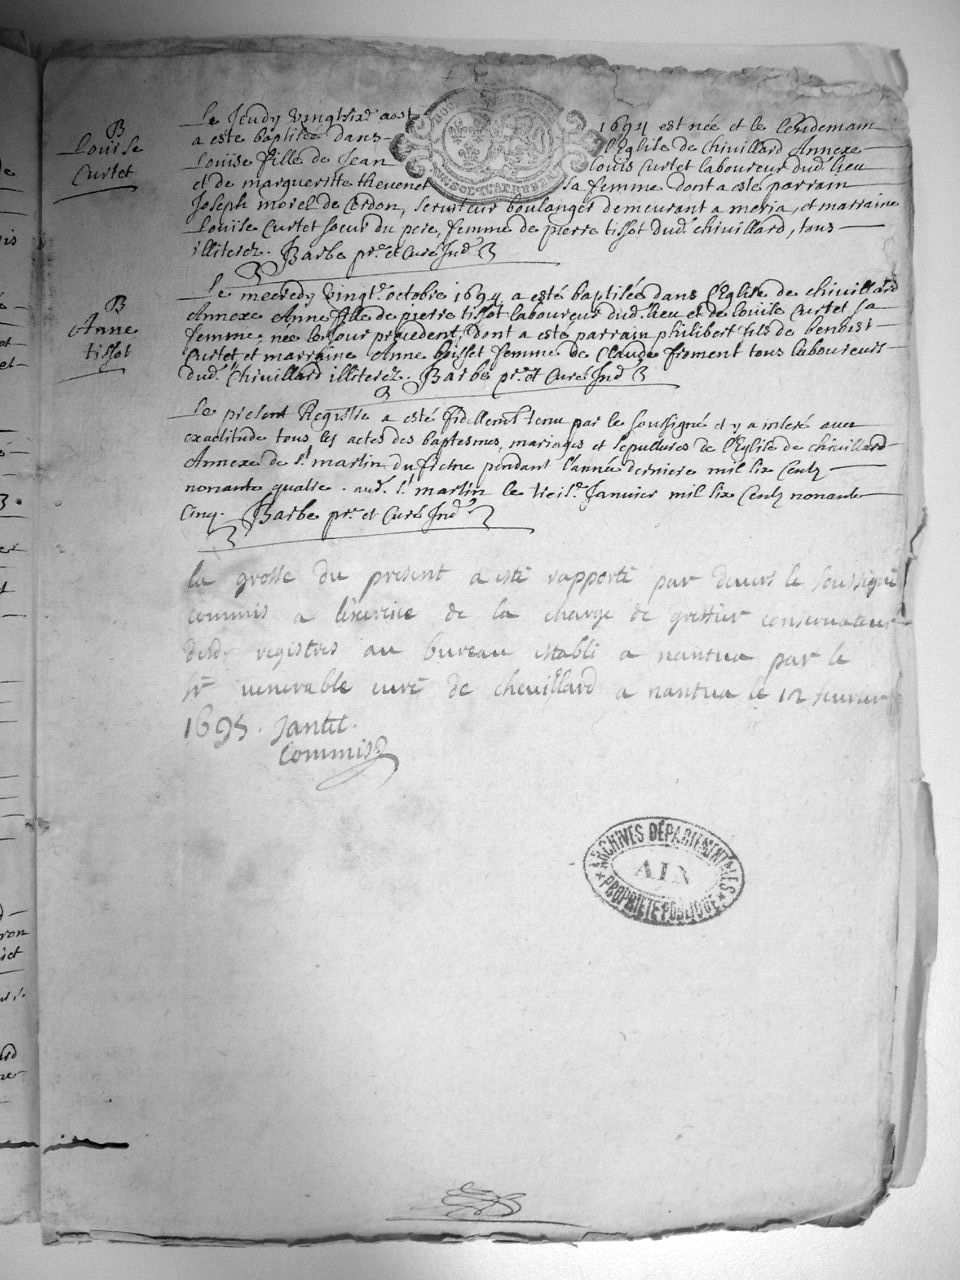 B
Louise
Curtet
Le Jeudy vingtsixe aost 1694 est née et le lendemain
a esté baptisée dans l'Eglise de chivillard Annexe
Louise fille de Jean Louis Curtet laboureur dud. lieu
et de margueritte thevenet sa femme dont a esté parrain
Joseph morel de Cerdon, serviteur boulanger demeurant a meria, et marraine
Louise Curtet soeur du pere, femme de pierre tissot dud. chivillard, tous
illiterez. Barbe pr. et Curé Ind.
B
Anne
tissot
Le mecredy vingte octobre 1694 a esté baptisée dans l'Eglise de chivillard
Annexe Anne fille de pierre tissot laboureur dud. lieu et de Louise Curtet sa
femme, nee le jour precedent, dont a esté parrain philibert fils de benoist
Curtet et marraine Anne boisset femme de Claude froment tous laboureurs
dud. Chivillard illiterez. Barbe pr. et Curé Ind.
Le present Registre a esté fidellemt tenu par le soussigné et y a inseré avec
exactitude tous les actes des baptesmes, mariages et sepultures de l'Eglise de chivillard
Annexe de st martin du fresne pendant l'année derniere mil six Cents
nonante quatre. aud. st. martin le treise Janvier mil six Cents nonante
Cinq. Barbe pr. et Curé Ind.
la grosse du present a esté rapporté par devers le soussigné
commis a l'exercice de la charge de greffier conservateur
desd. registres au bureau establi a nantua par le
sr venerable curé de chevillard a nantua le 12 fevrier
1695. Jantet.
Commis
ARCHIVES DÉPARTEMENTALES
AIN
PROPRIÉTÉ PUBLIQUE